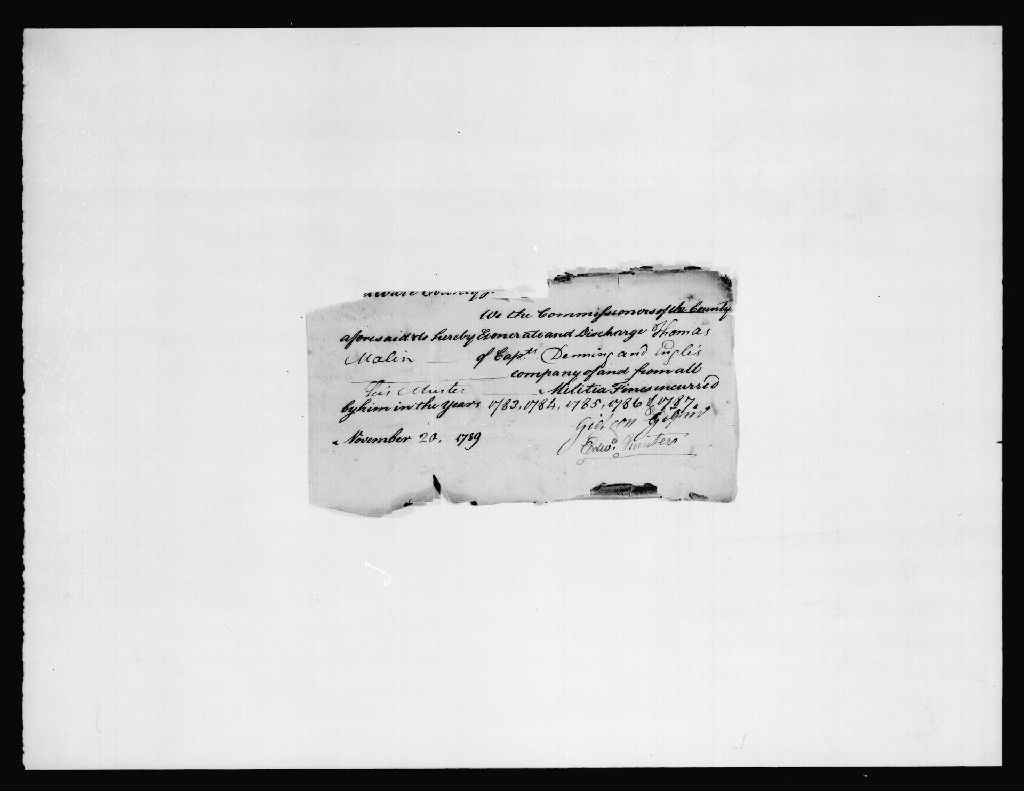 aware County ss.
We the Commissioners of the County
aforesaid do hereby Exonerate and Discharge Thomas
Malin of Capts. Deming and Engles
company of and from all
Muster Militia Fines incurred
by him in the Years 1783, 1784, 1785, 1786 & 1787
Gideon
November 20. 1789
Edwd. Hunter